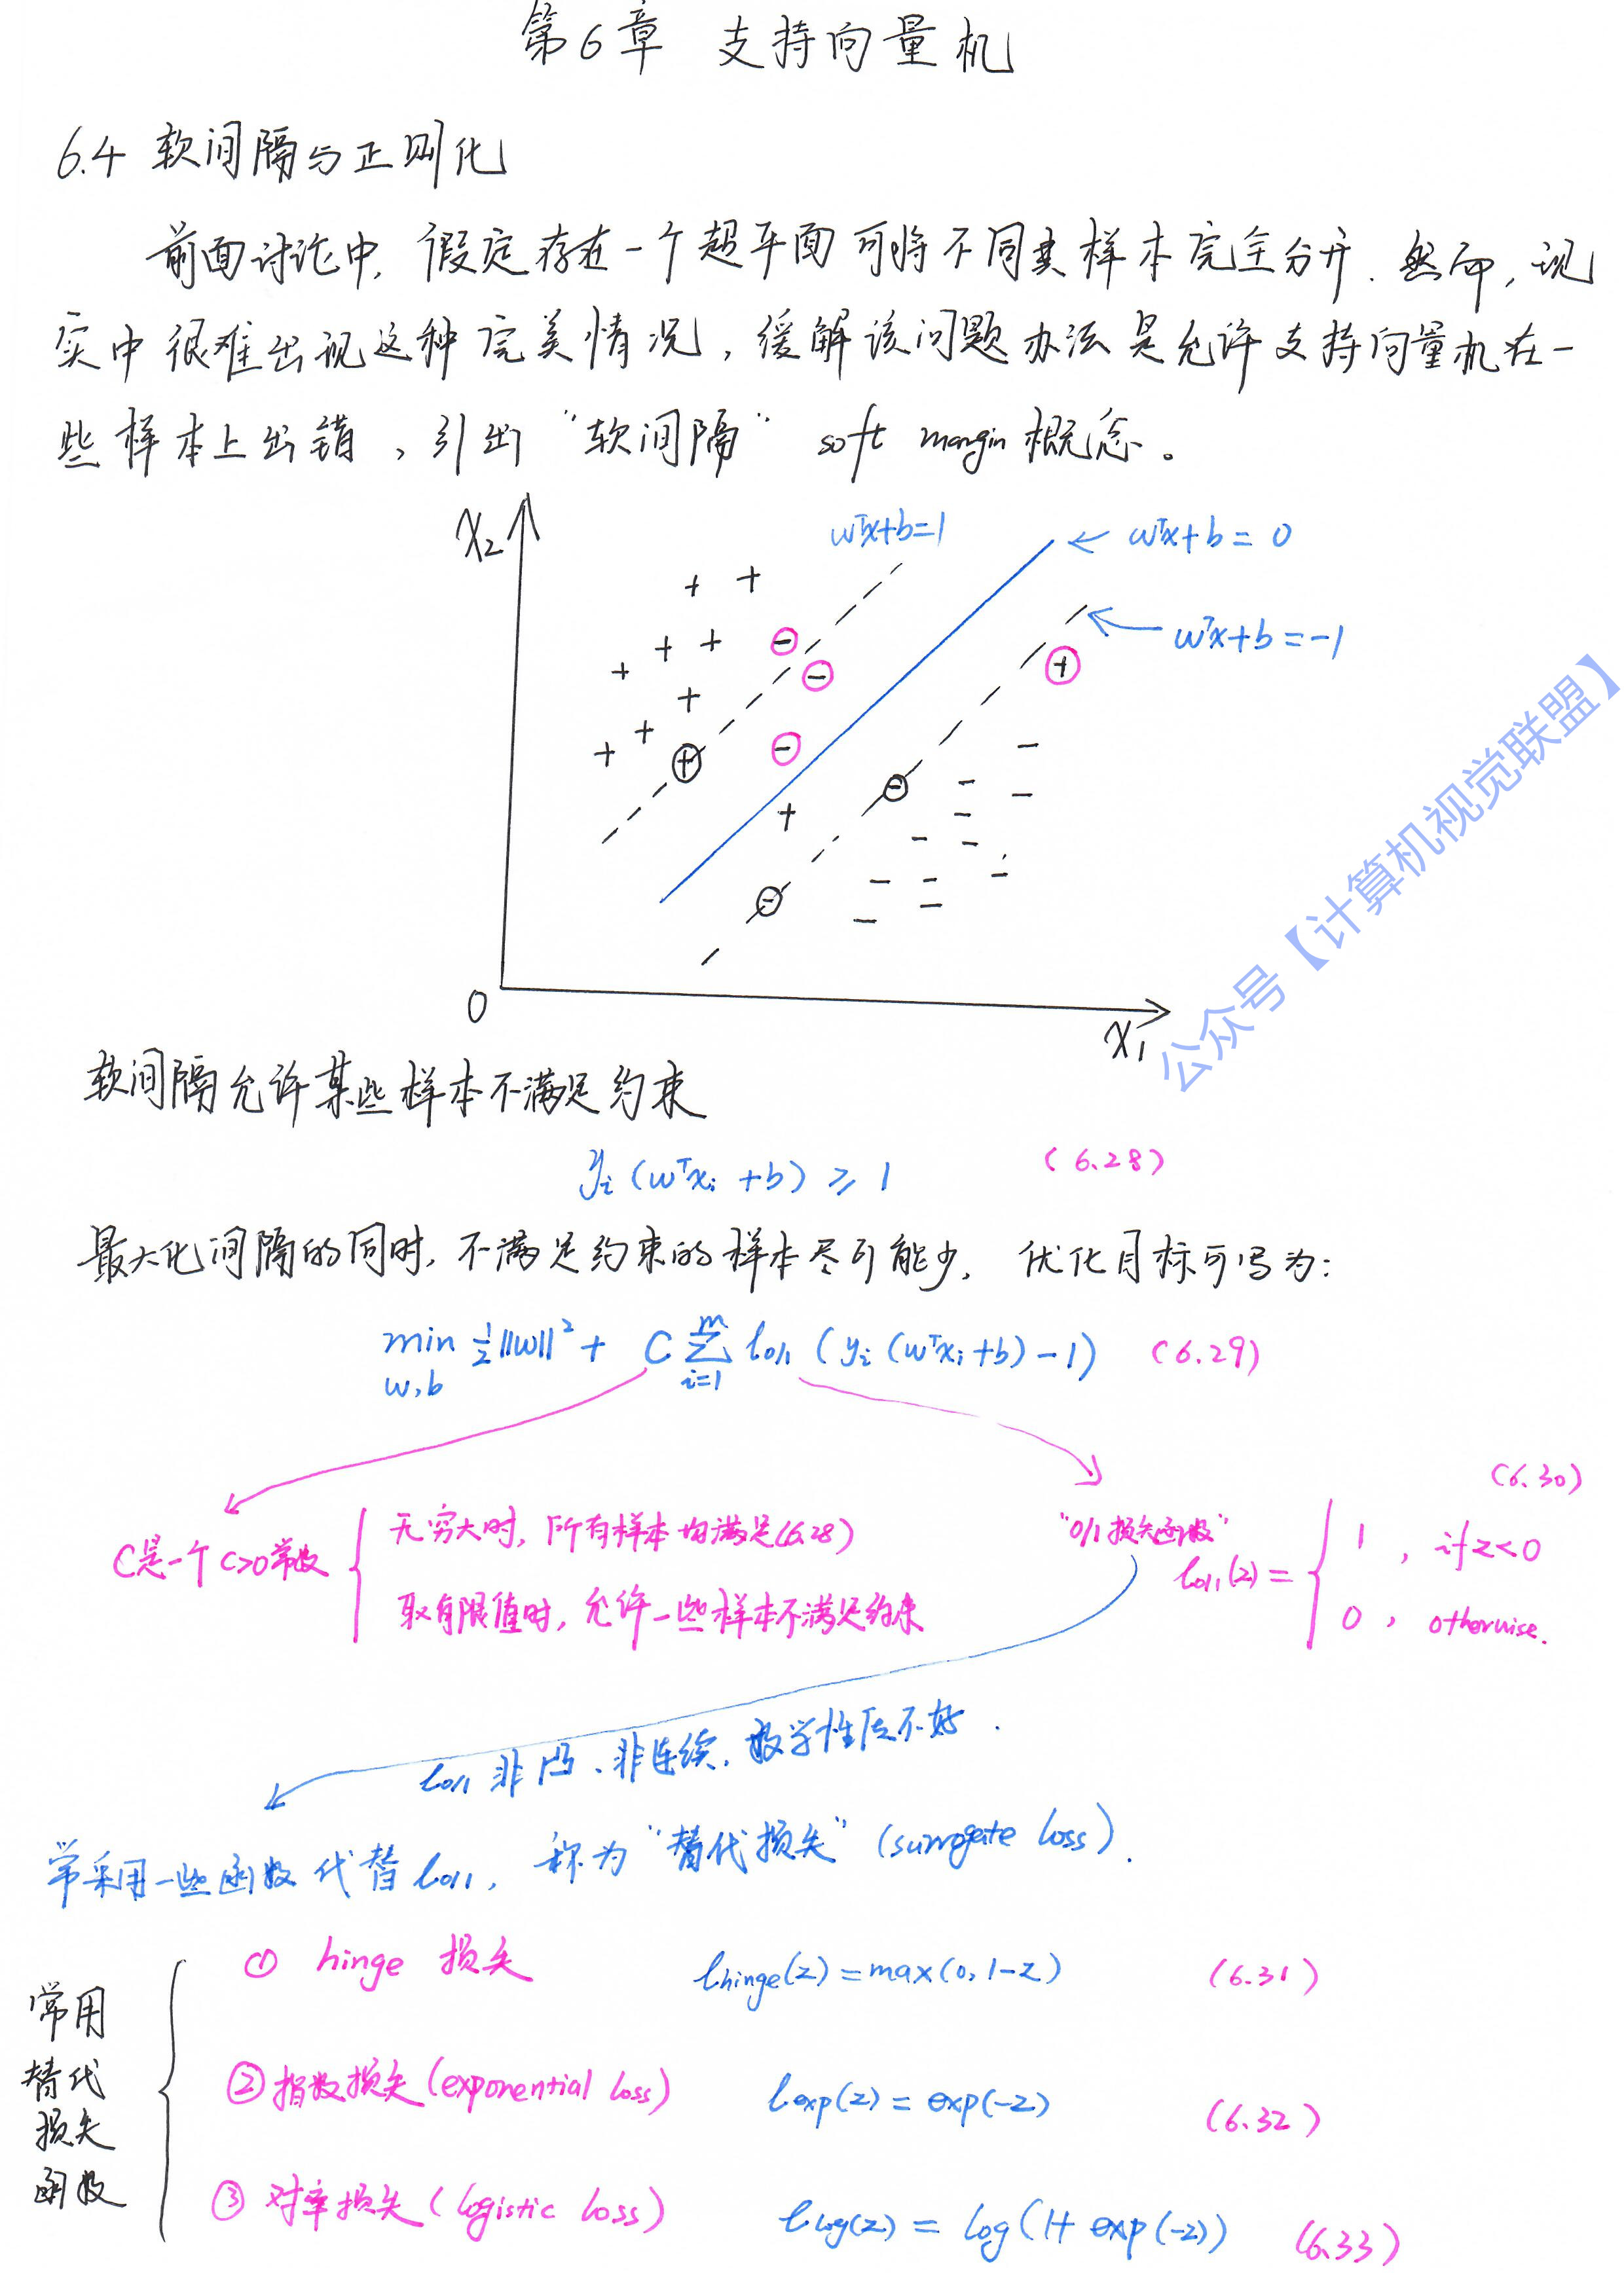 第6章 支持向量机
6.4 软间隔与正则化
前面讨论中, 假定存在一个超平面可将不同类样本完全分开. 然而, 现
实中很难出现这种完美情况, 缓解该问题办法是允许支持向量机在一
些样本上出错, 引出 "软间隔" soft margin 概念。
x₂
wᵀx+b=1
wᵀx+b=0
wᵀx+b=-1
0
x₁
公众号【计算机视觉联盟】
软间隔允许某些样本不满足约束
yᵢ(wᵀxᵢ+b)≥1 (6.28)
最大化间隔的同时, 不满足约束的样本尽可能少, 优化目标可写为:
min w,b ½||w||² + C Σᵢ₌₁ᵐ ℓ0/1 (yᵢ(wᵀxᵢ+b)-1) (6.29)
C是一个C>0常数
无穷大时, 所有样本均满足(6.28)
取有限值时, 允许一些样本不满足约束
"0/1损失函数"
(6.30)
ℓ0/1(z) = { 1, if z<0
0, otherwise.
ℓ0/1 非凸、非连续, 数学性质不好.
常采用一些函数代替ℓ0/1, 称为"替代损失" (surrogate loss).
常用替代损失函数
① hinge 损失 ℓhinge(z)=max(0,1-z) (6.31)
② 指数损失(exponential loss) ℓexp(z)=exp(-z) (6.32)
③ 对率损失(logistic loss) ℓlog(z)=log(1+exp(-z)) (6.33)